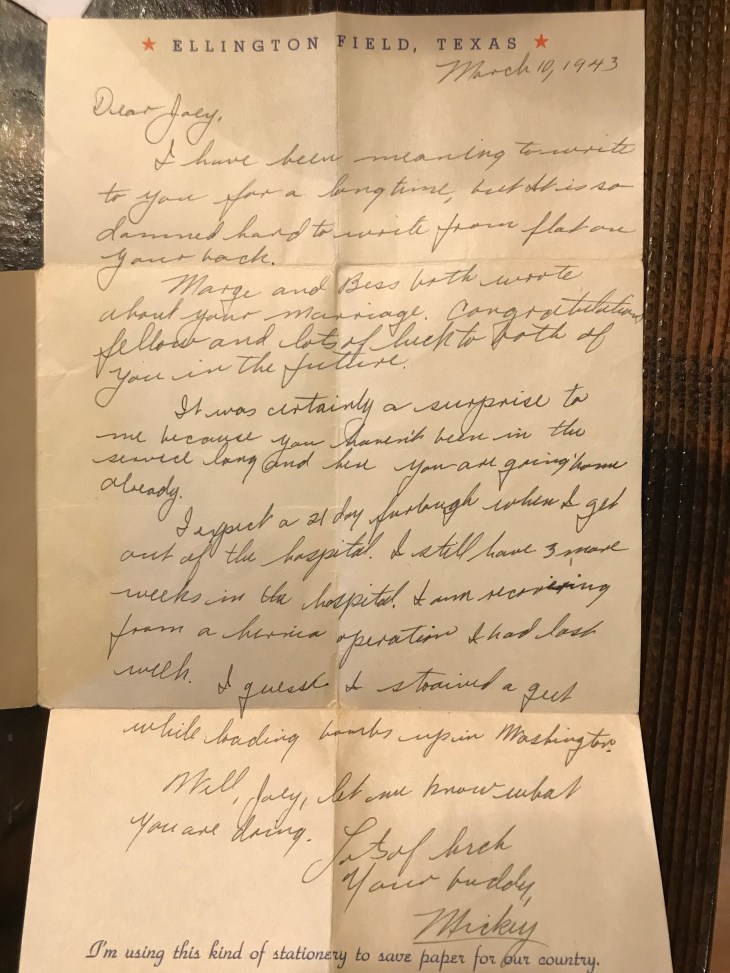 ★ ELLINGTON FIELD, TEXAS ★
March 10, 1943
Dear Joey,
I have been meaning to write
to you for a long time, but it is so
damned hard to write from flat on
your back.
Marge and Bess both wrote
about your marriage. Congratulations
fellow and lots of luck to both of
you in the future.
It was certainly a surprise to
me because you haven't been in the
service long and here you are going home
already.
I expect a 21 day furlough when I get
out of the hospital. I still have 3 more
weeks in the hospital. I am recovering
from a hernia operation I had last
week. I guess I strained a gut
while loading bombs up in Washington.
Well, Joey, let me know what
you are doing.
Lots of luck
Your buddy,
Mickey
I'm using this kind of stationery to save paper for our country.